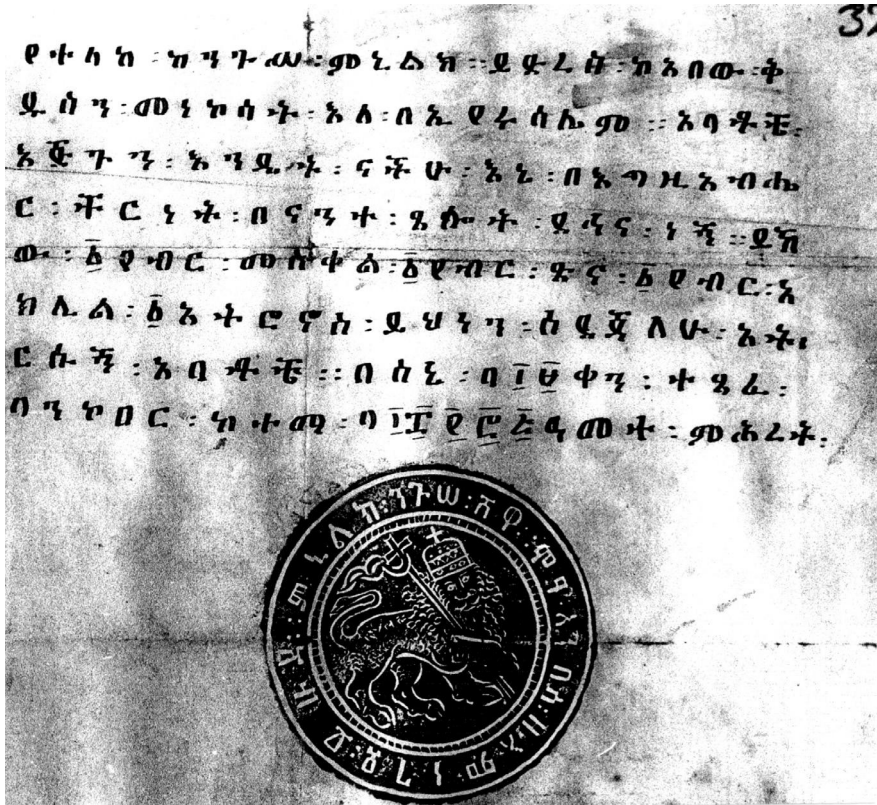 የተላከ፡ከንጉሠ፡ምኒልክ።ይድረስ፡ከአበው፡ቅ
ዱሳን፡መነኮሳት፡እለ፡በኢየሩሳሌም።አባቶቼ፡
እጅጉን፡እንዴት፡ናችሁ፡እኔ፡በእግዚአብሔ
ር፡ቸርነት፡በናንተ፡ጸሎት፡ደኅና፡ነኝ።ይኸ
ው፡፩የብር፡መስቀል፡፩የብር፡ጽና፡፩የብር፡አ
ክሊል፡፩አትሮኖስ፡ይህነን፡ሰድጃለሁ፡አት፡
ርሱኝ፡አባቶቼ።በሰኔ፡በ፲፱ቀን፡ተጻፈ፡
ባንኮበር፡ከተማ፡በ፲፰፻፸፭ዓመተ፡ምሕረት፡
ምኒልክ፡ንጉሠ፡ሸዋ፡ሞዓ፡አንበሳ፡ዘእምነገደ፡ይሁዳ።